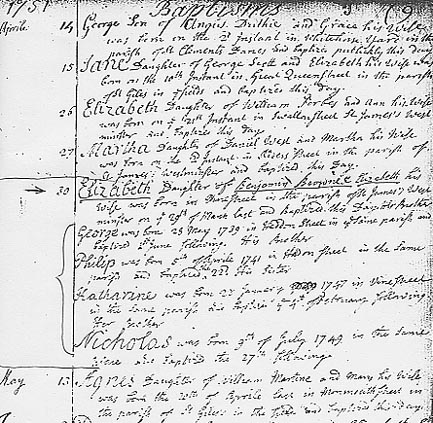 1751 Baptisms
Aprile. 14 George Son of Angus Duthie and Grace his Wife
was born on the Instant in Whitehorse Yard in the
parish of St Clements Danes and Baptized publickly this day
15 Jane Daughter of George Scott and Elizabeth his Wife
born on the 10th Instant in Great Queenstreet in the parish
of St Giles in ye fields and Baptized this day.
26 Elizabeth Daughter of William Forbes and Ann his Wife
was born on ye 21st Instant in Swallowstreet St James's West
minster and Baptized this Day
27 Martha Daughter of Daniel West and Martha his Wife
was born on the Instant in Street in the parish of
St James's Westminster and Baptized this Day.
30 Elizabeth Daughter of Benjamin Elizabeth his
wife was born in Vinestreet in the parish of St James's West
minster on ye 29th of March last and Baptized this Day her Brother
George was born 23 May 1739 in Street in ye Same parish and
Baptized June following. His Brother
Philip was born 5th of Aprile 1741 in street in the Same
parish and Baptized the 22d His Sister
Katharine was born 22 January 1747 in Vinestreet
in the Same parish and Baptized ye 4th of February following
Her Brother
Nicholas was born 9th of July 1749 in the Same
and Baptized the 27th following.
May 13 Agnes Daughter of William Martine and Mary his Wife
was born the 20th of Aprile last in Monmouthstreet in
the parish of St Giles's in the Fields and Baptized this day.